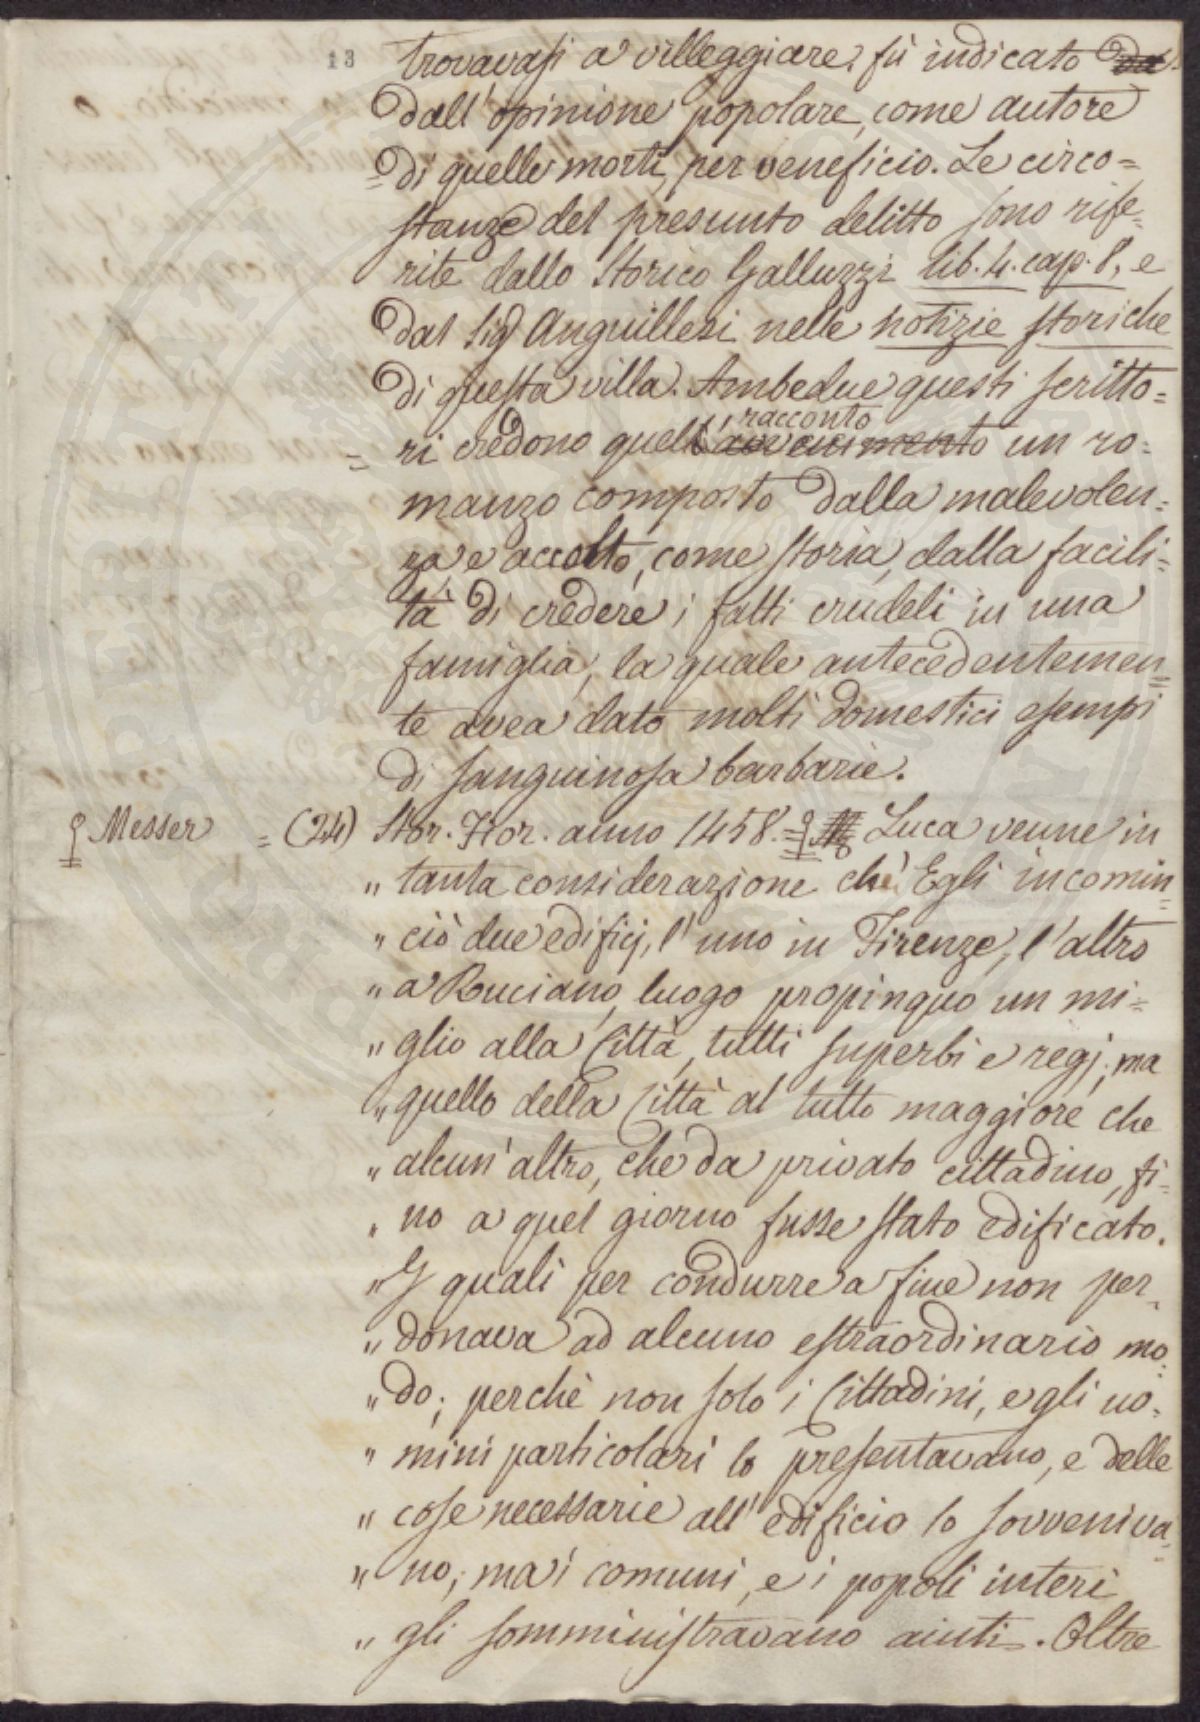 13
trovavasi a villeggiare, fù indicato da
dall'opinione popolare, come autore
di quelle morti, per veneficio. Le circo=
stanze del presunto delitto sono rife=
rite dallo Storico Galluzzi lib. 4. cap. 8, e
dal Sig. Anguillesi nelle notizie storiche
di questa villa. Ambedue questi scritto=
racconto
ri credono quell' avvenimento un ro=
manzo composto dalla malevolen=
za e accolto, come storia, dalla facili=
tà di credere i fatti crudeli in una
famiglia, la quale antecedentemen=
te avea dato molti domestici esempi
di sanguinosa barbarie.
Messer = (24) Stor. Fior. anno 1458. = Luca venne in
" tanta considerazione che Egli incomin=
" ciò due edificj, l'uno in Firenze, l'altro
" a Ruciano, luogo propinquo un mi=
" glio alla Città, tutti superbi e regj; ma
" quello della Città al tutto maggiore che
" alcun'altro, che da privato cittadino, fi=
" no a quel giorno fusse stato edificato.
" I quali per condurre a fine non per=
" donava ad alcuno estraordinario mo=
" do; perchè non solo i Cittadini, e gli uo=
" mini particolari lo presentavano, e delle
" cose necessarie all'edificio lo sovveniva=
" no; ma i comuni, e i popoli interi
" gli somministravano aiuti =. Oltre